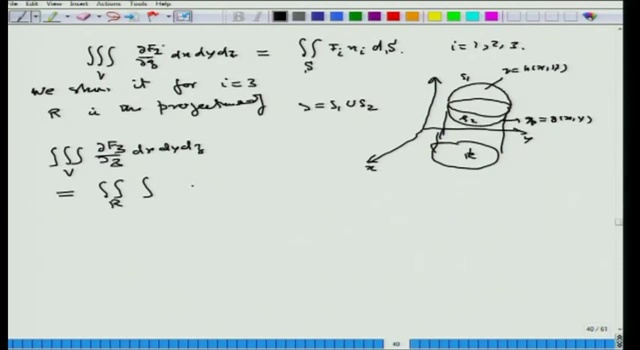 File Edit View Insert Actions Tools Help
∭_V ∂F_i/∂z dx dy dz = ∬_S F_i n_i dS. i = 1, 2, 3.
We show it for i = 3
R is the projection of S = S₁ ∪ S₂
∭_V ∂F₃/∂z dx dy dz
= ∬_R ∫
S₁
z = h(x, y)
S₂
z = g(x, y)
R
x
y
40 / 61
40